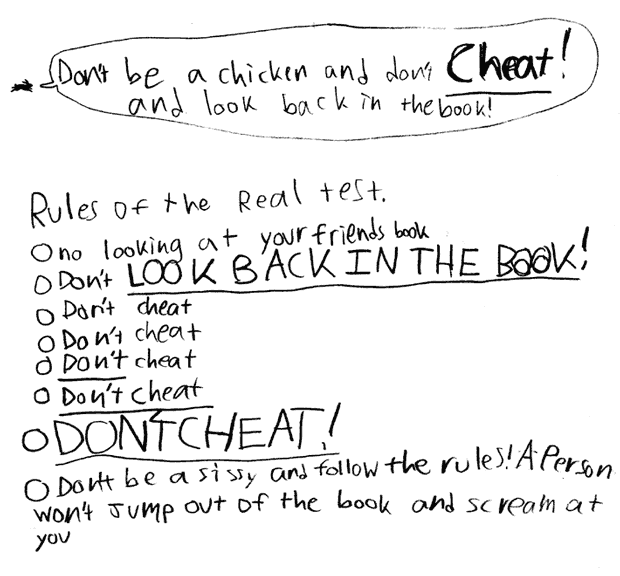 Don't be a chicken and don't Cheat!
and look back in the book!
Rules of the Real test.
no looking at your friends book
Don't LOOK BACK IN THE BOOK!
Don't cheat
Don't cheat
Don't cheat
Don't cheat
DON'T CHEAT!
Dont be a sissy and follow the rules! A Person
won't Jump out of the book and scream at
you